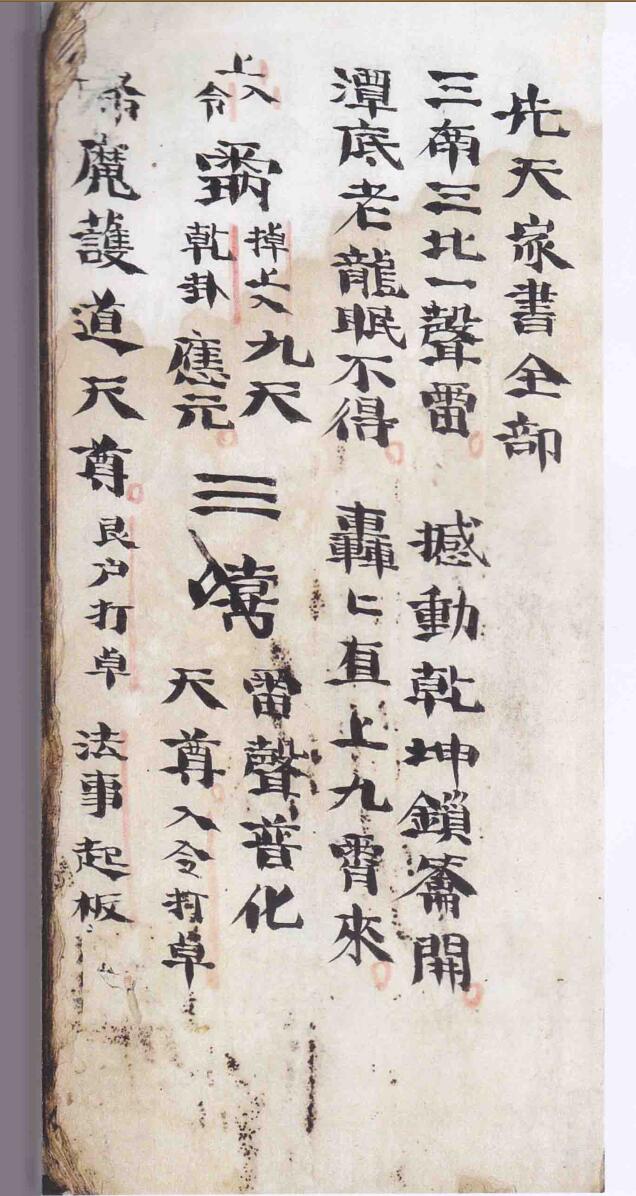 先天家書全部
三南三北一聲雷 撼動乾坤鎖籥開
潭底老龍眠不得 轟〻直上九霄來
上入
令
掉上入
乾卦
九天
應元
☰
雷聲普化
天尊入令打卓
魔護道天尊艮户打卓 法事起板